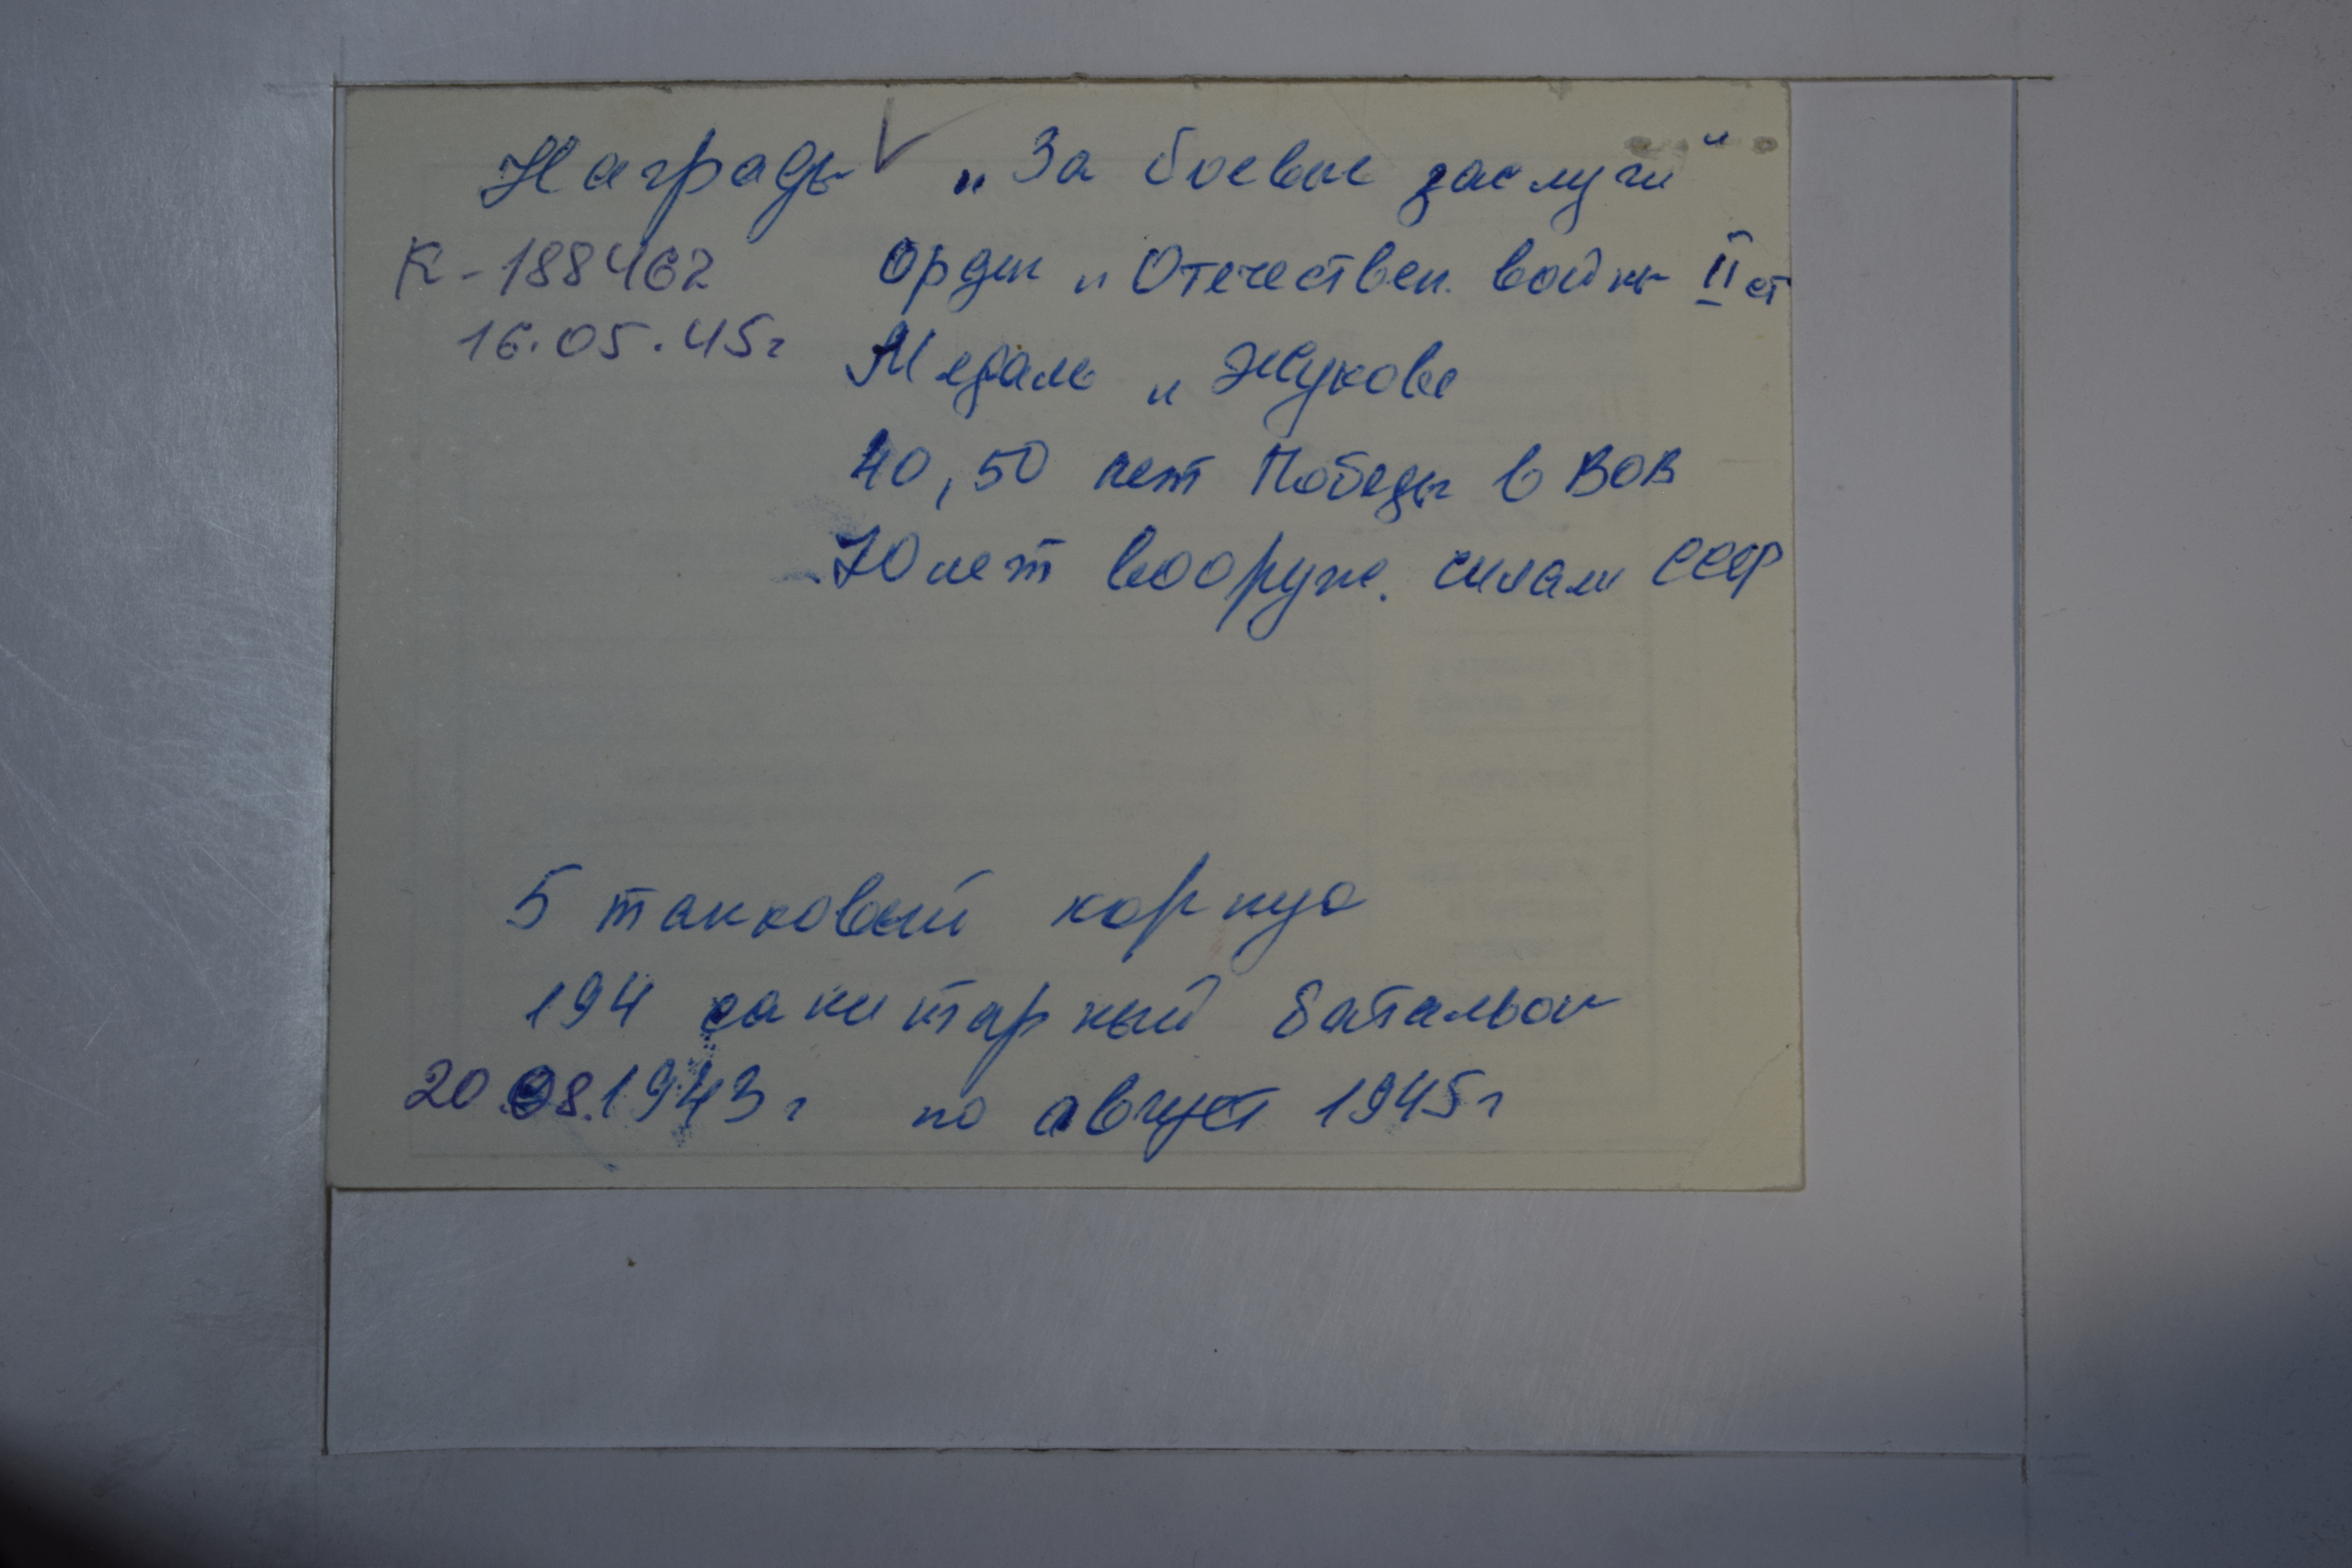 Награды „За боевые заслуги"
К-188462 Орден „Отечествен. войны II ст
16.05.45г Медаль „Жукова
40, 50 лет Победы в ВОВ
70 лет вооруж. силам СССР
5 танковый корпус
194 санитарный батальон
20.08.1943г по август 1945г